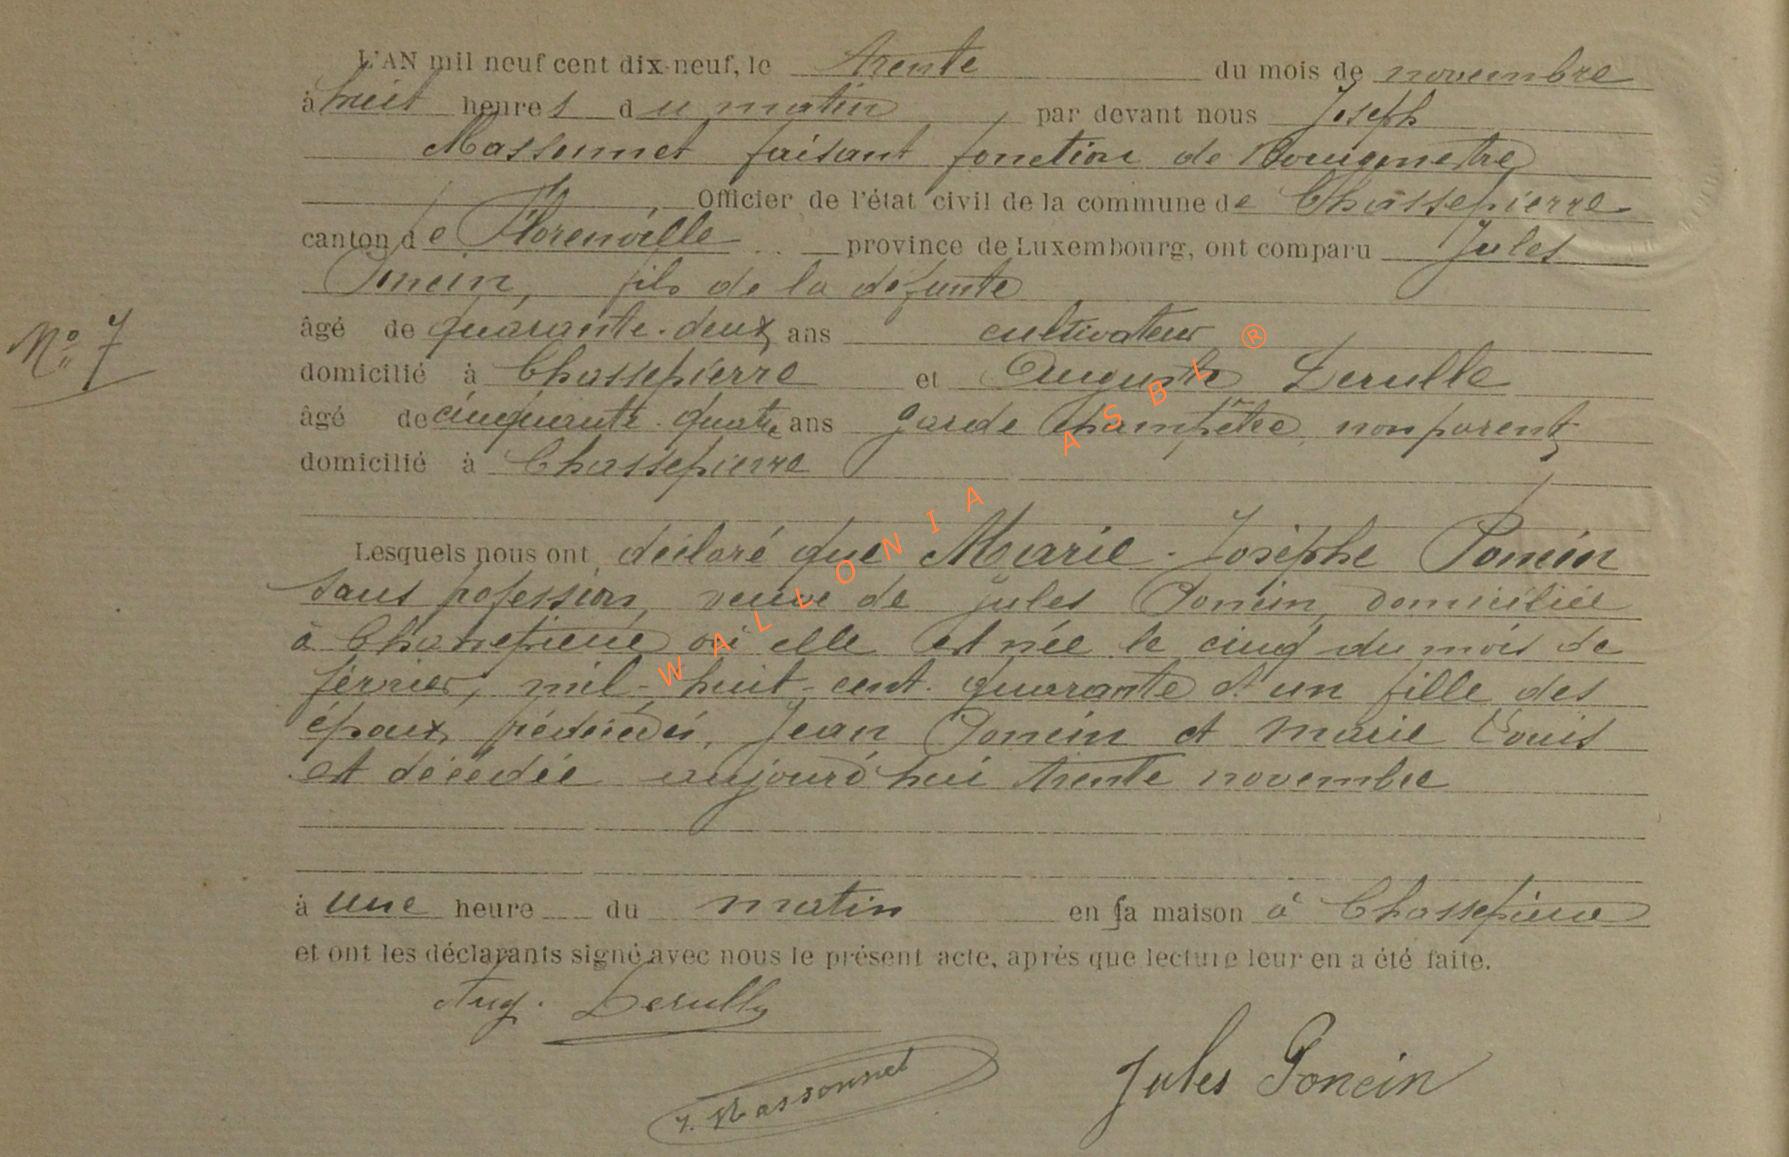 L'AN mil neuf cent dix-neuf, le trente du mois de novembre
à huit heures du matin par devant nous Joseph
Massonnet faisant fonction de Bourgmestre
, Officier de l'état civil de la commune de Chassepierre
canton de Florenville province de Luxembourg, ont comparu Jules
Poncin, fils de la défunte
No 7
âgé de quarante-deux ans cultivateur
domicilié à Chassepierre et Auguste Derulle
âgé de cinquante-quatre ans garde champêtre, non parent
domicilié à Chassepierre
Lesquels nous ont déclaré que Marie-Josèphe Poncin
sans pofession, veuve de Jules Poncin, domiciliée
à Chassepierre où elle est née le cinq du mois de
février, mil-huit-cent-quarante et un fille des
époux prédécédés, Jean Poncin et Marie Louis
est décédée aujourd'hui trente novembre
à une heure du matin en sa maison à Chassepierre
et ont les déclarants signé avec nous le présent acte, après que lecture leur en a été faite.
Aug. Derulle
J. Massonnet
Jules Poncin
WALLONIA ASBL ®